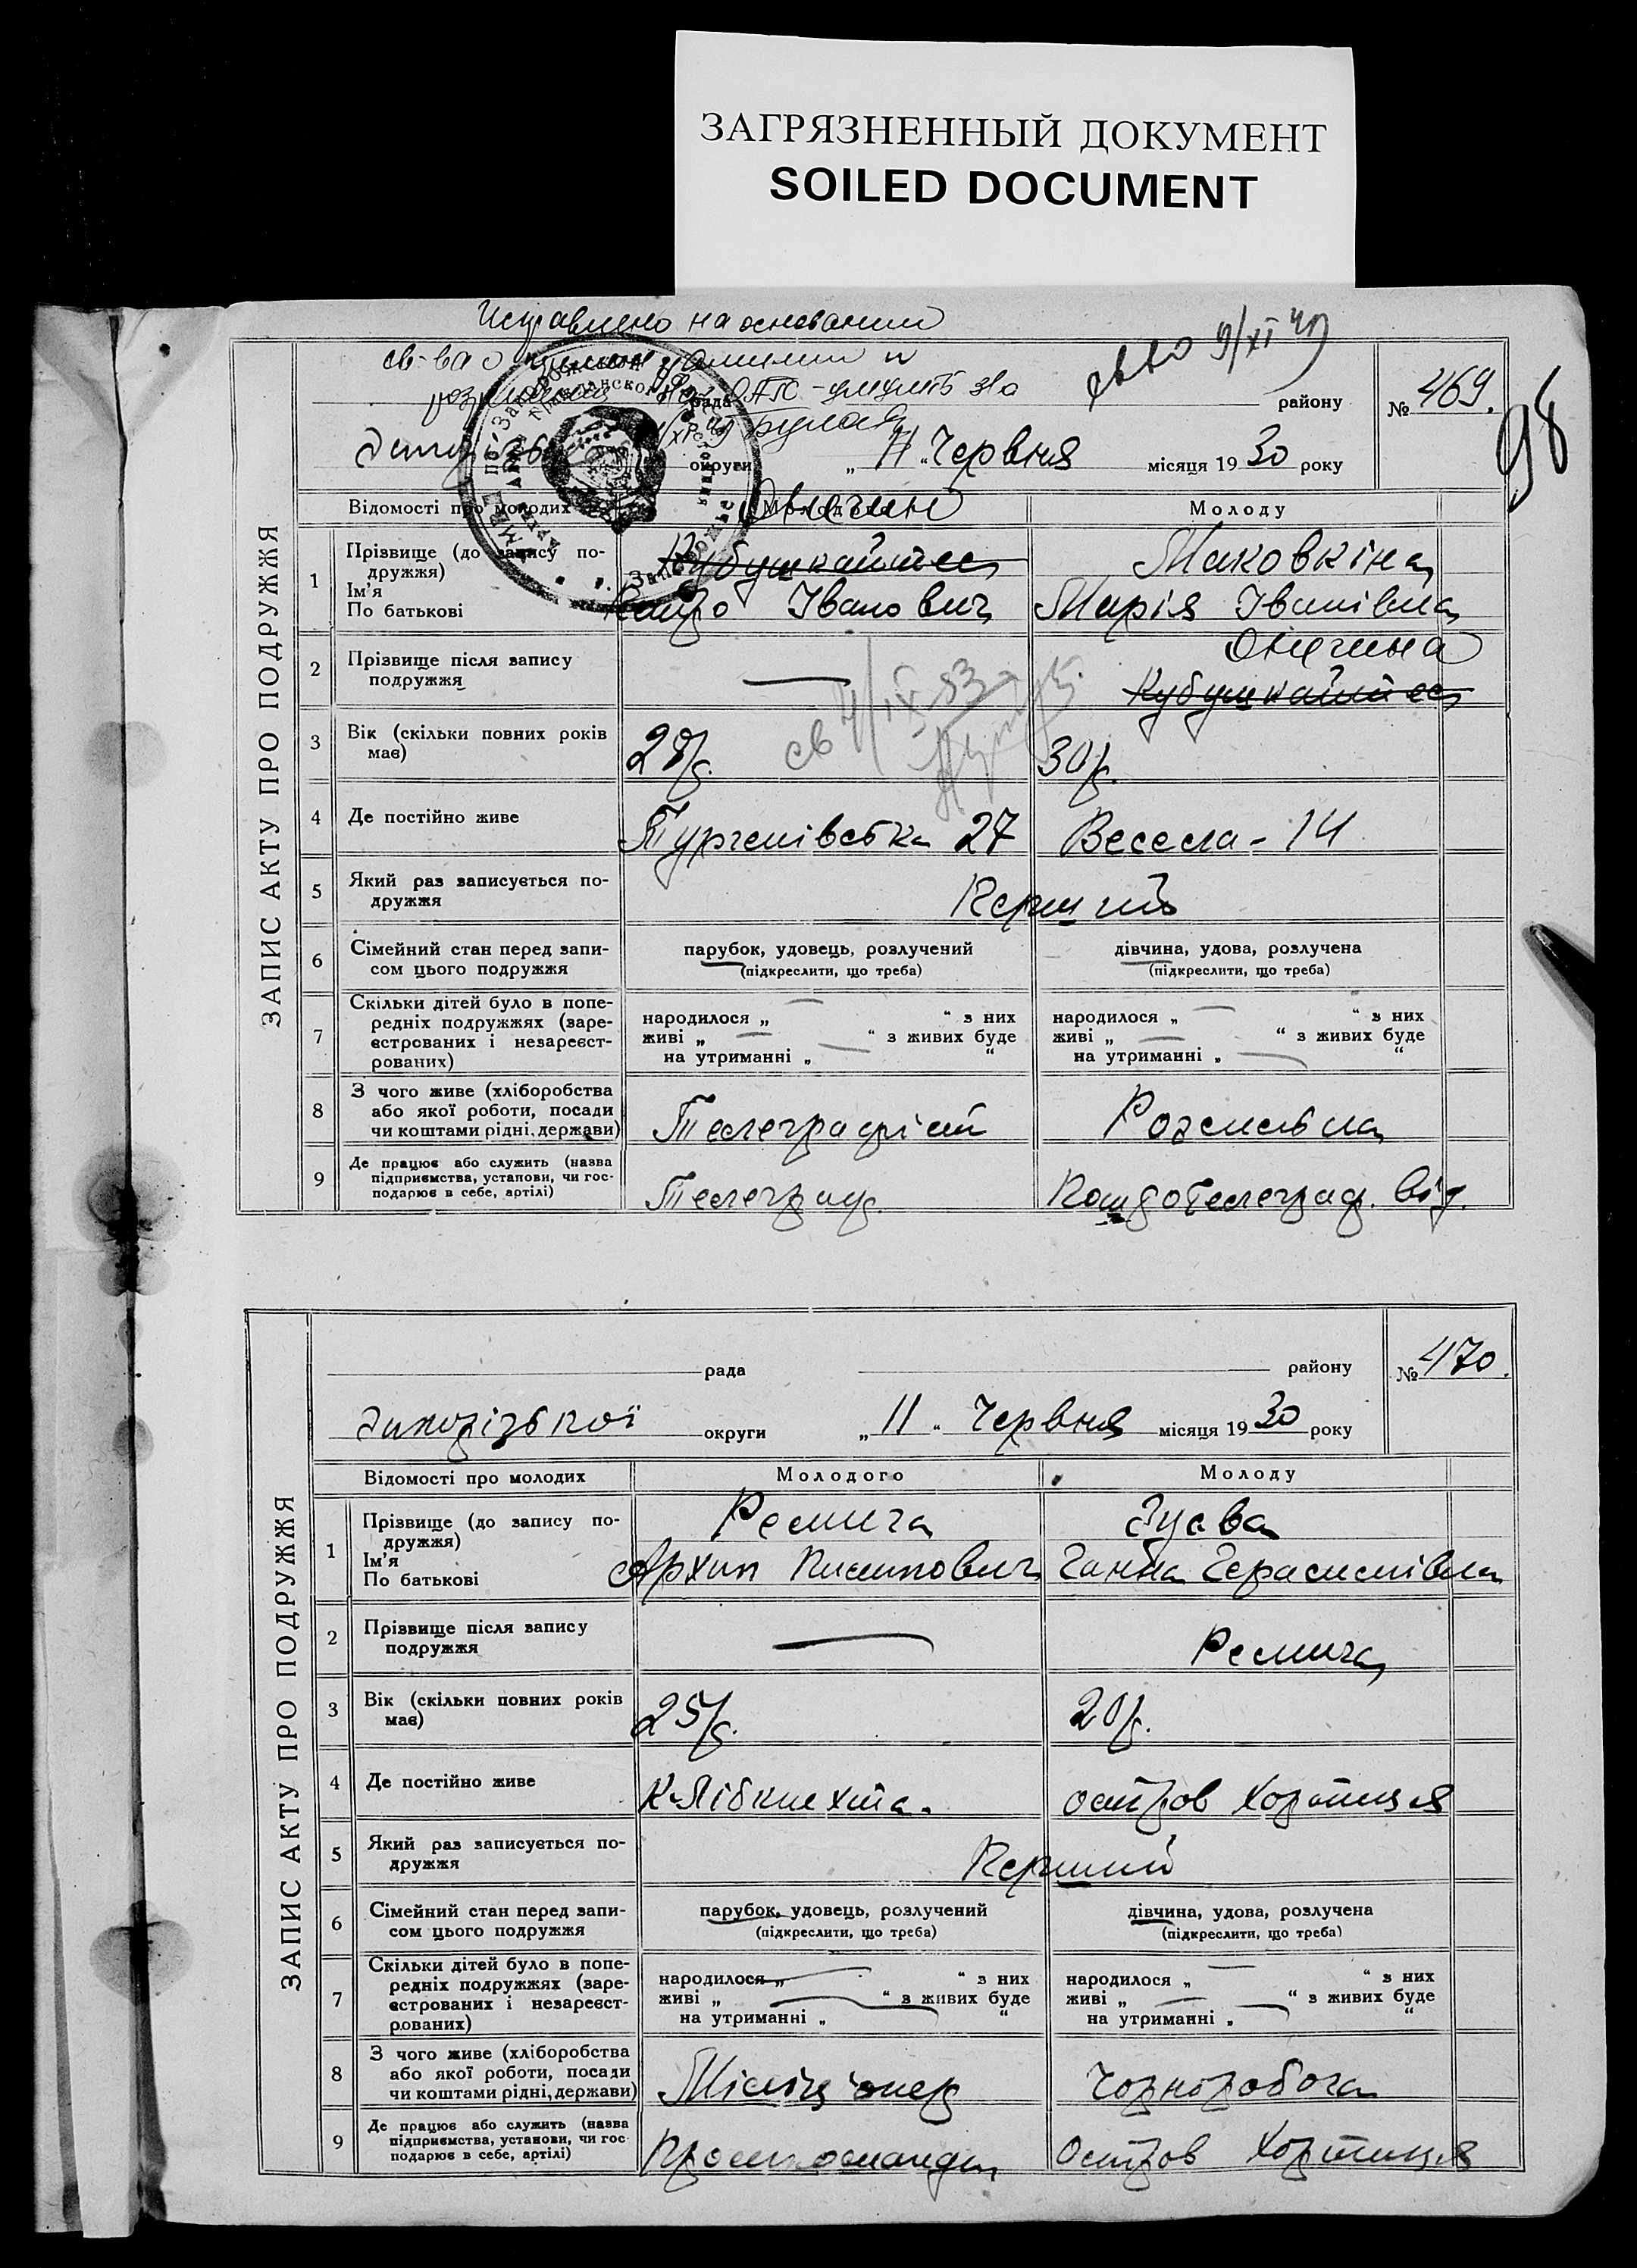 ЗАГРЯЗНЕННЫЙ ДОКУМЕНТ
SOILED DOCUMENT
Исправлено на основании
св-ва о фамилии и
рада
района
св-во 9/XI 49
району
№ 469.
98
округи „11“ Червня місяця 1930 року
ЗАПИС АКТУ ПРО ПОДРУЖЖЯ
Відомості про молодих
Молоду
Онегин
1 Прізвище (до запису подружжя)
Ім'я
По батькові
Маковкіна
Іванович Марія Іванівна
2 Прізвище після запису
подружжя
—
Онегина
3 Вік (скільки повних років
має)
28 р.
30 р.
4 Де постійно живе
Тургенівська 27 Весела - 14
5 Який раз записується по-
дружжя
Перший
6 Сімейний стан перед запи-
сом цього подружжя
парубок, удовець, розлучений
(підкреслити, що треба)
дівчина, удова, розлучена
(підкреслити, що треба)
7 Скільки дітей було в попе-
редніх подружжях (заре-
єстрованих і незареєст-
рованих)
народилося „ — “ з них
живі „ — “ з живих буде
на утриманні „ — “
народилося „ — “ з них
живі „ — “ з живих буде
на утриманні „ — “
8 З чого живе (хліборобства
або якої роботи, посади
чи коштами рідні, держави)
Телеграфіст
9 Де працює або служить (назва
підприємства, установи, чи гос-
подарює в себе, артілі)
Телеграф.
Поштотелеграф. від.
ЗАПИС АКТУ ПРО ПОДРУЖЖЯ
рада
району
№ 470.
Запорізької округи „11“ Червня місяця 1930 року
Відомості про молодих
Молодого
Молоду
1 Прізвище (до запису по-
дружжя)
Ім'я
По батькові
Ремига Зуева
Архип Пилипович Ганна Герасимівна
2 Прізвище після запису
подружжя
—
Ремига
3 Вік (скільки повних років
має)
25 р.
20 р.
4 Де постійно живе
К-Лібкнехта.
остров Хортиця
5 Який раз записується по-
дружжя
Перший
6 Сімейний стан перед запи-
сом цього подружжя
парубок, удовець, розлучений
(підкреслити, що треба)
дівчина, удова, розлучена
(підкреслити, що треба)
7 Скільки дітей було в попе-
редніх подружжях (заре-
єстрованих і незареєст-
рованих)
народилося „ — “ з них
живі „ — “ з живих буде
на утриманні „ — “
народилося „ — “ з них
живі „ — “ з живих буде
на утриманні „ — “
8 З чого живе (хліборобства
або якої роботи, посади
чи коштами рідні, держави)
Міліціонер
Чорноробоча
9 Де працює або служить (назва
підприємства, установи, чи гос-
подарює в себе, артілі)
Остров Хортиця